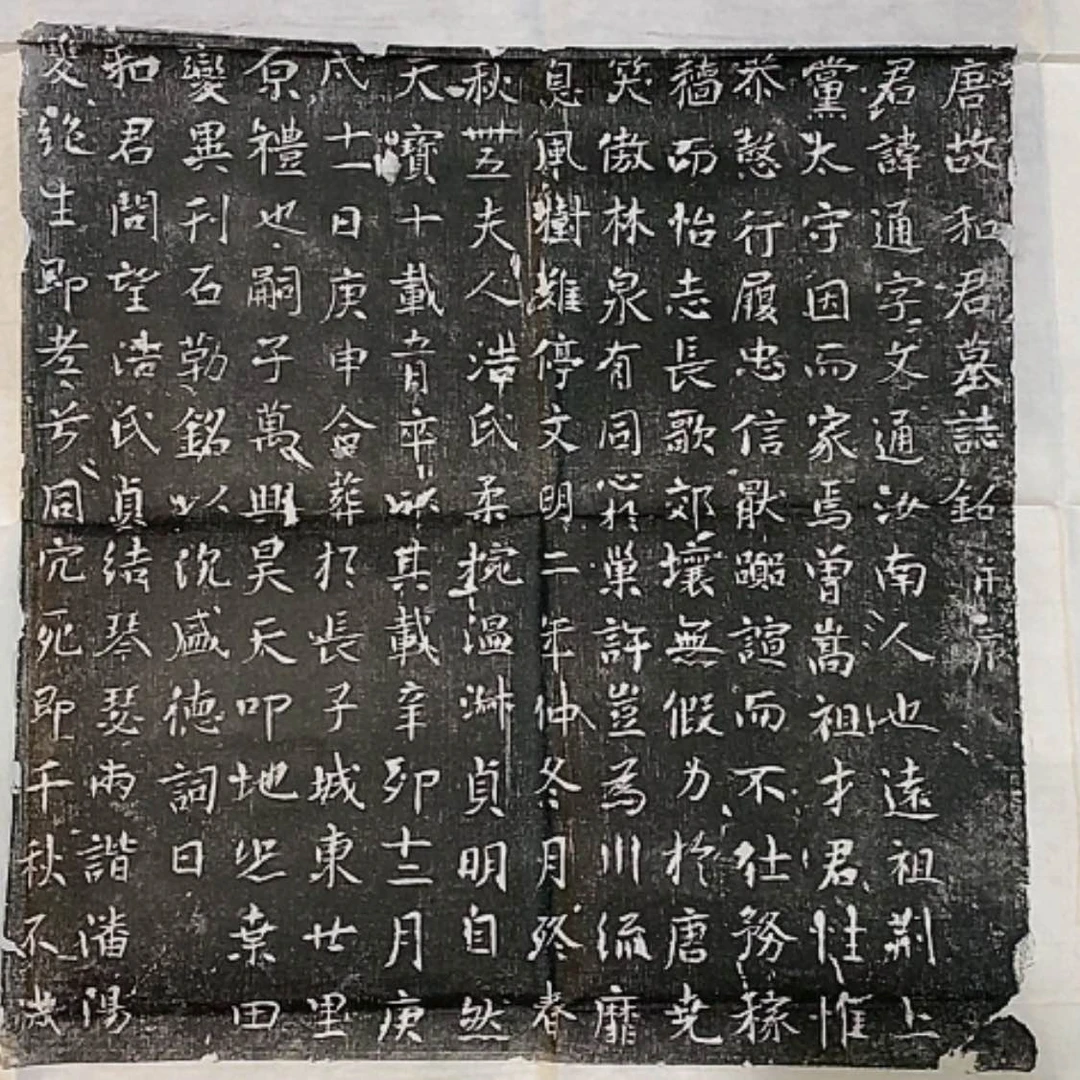 唐故和君墓誌銘并序
君諱通字文通汝南人也遠祖荆上
黨太守因而家焉曾嵩祖才君性惟
恭慤行履忠信厭躁諠而不仕務稼
穡而怡志長歌郊壤無假力於唐堯
笑傲林泉有同心於巢許豈為川流靡
息風樹難停文明二年仲冬月終春
秋丗五夫人浩氏柔婉溫淋貞明自然
天寶十載五月卒以其載辛卯十二月庚
戌十一日庚申合葬於長子城東廿里
原禮也嗣子萬興昊天叩地恐桒田
變異刊石勒銘以悅盛德詞曰
和君問望浩氏貞結琴瑟兩諧潘陽
雙絶生即孝兮同穴死即千秋不滅